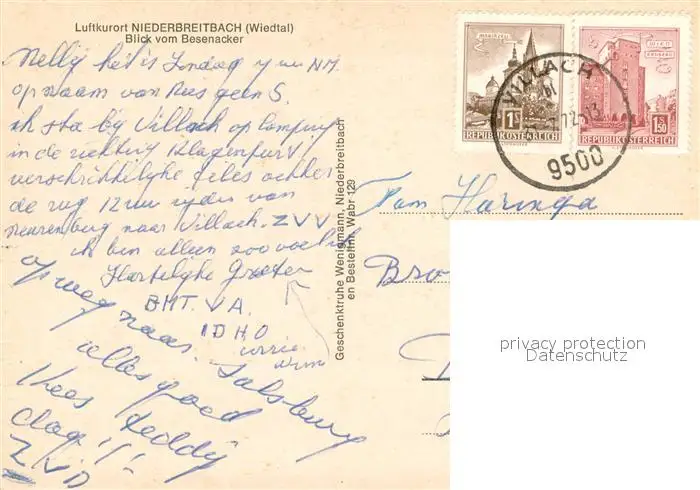 Luftkurort NIEDERBREITBACH (Wiedtal)
Blick vom Besenacker
Nelly het is Zondag 7 uur NM.
op Naam van Kees geen S.
ik sta bij Villach op Camping
in de richting Klagenfurt
verschrikkelijke files achter
de rug 12 uur rijden van
Neurenburg naar Villach. ZVV
ik ben alleen zoo voelt
Hartelijke Groeten
BMT. V A.
IDHO
op weg naar Salsburg
alles goed
Kees Teddy
dag!!
ZVD
Geschenktruhe Wenigmann, Niederbreitbach
en Bestellnr. Wabr 129
MARIAZELL
1S
REPUBLIK ÖSTERREICH
WIEN
ERDBERG
1S50
REPUBLIK ÖSTERREICH
VILLACH
9500
Fam Haringa
Bro
privacy protection
Datenschutz